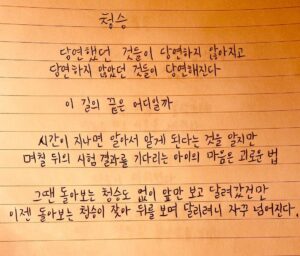 청승
당연했던 것들이 당연하지 않아지고
당연하지 않았던 것들이 당연해진다
이 길의 끝은 어디일까
시간이 지나면 알아서 알게 된다는 것을 알지만
며칠 뒤의 시험 결과를 기다리는 아이의 마음은 괴로운 법
그땐 돌아보는 청승도 없이 앞만 보고 달려갔건만
이젠 돌아보는 청승이 잦아 뒤를 보며 달리려니 자꾸 넘어진다.